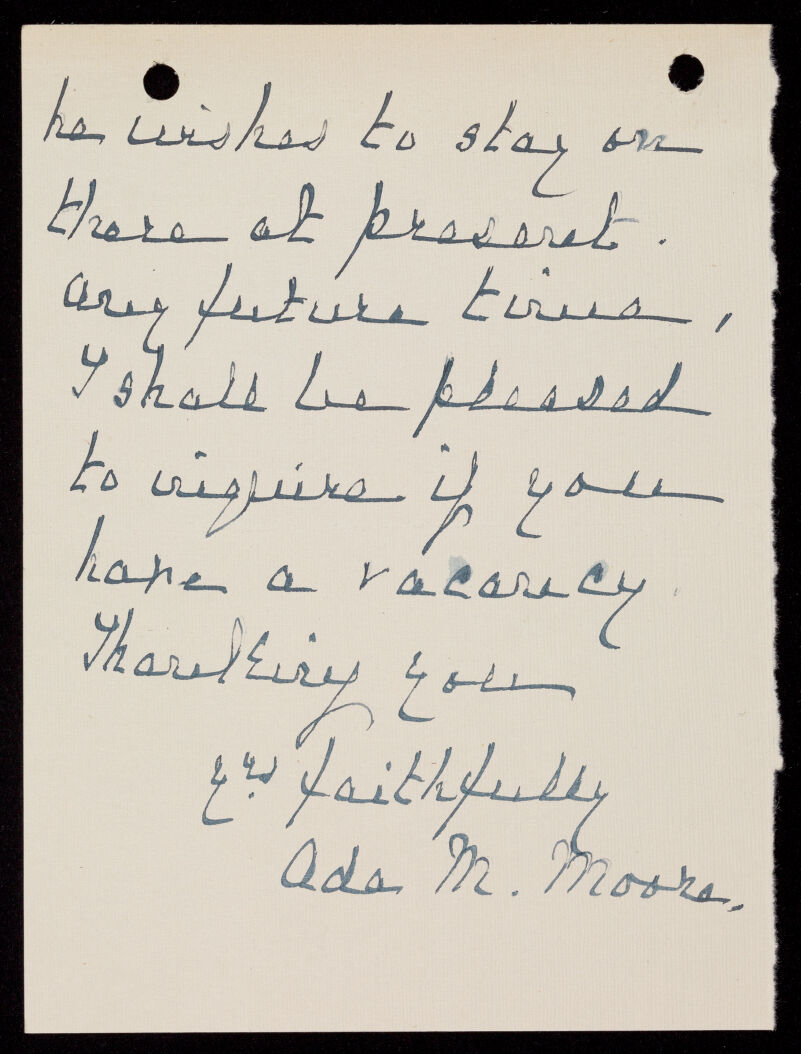 he wishes to stay on
there at present.
Any future time,
I shall be pleased
to inquire if you
have a vacancy.
Thanking you
yrs faithfully
Ada M. Moore.